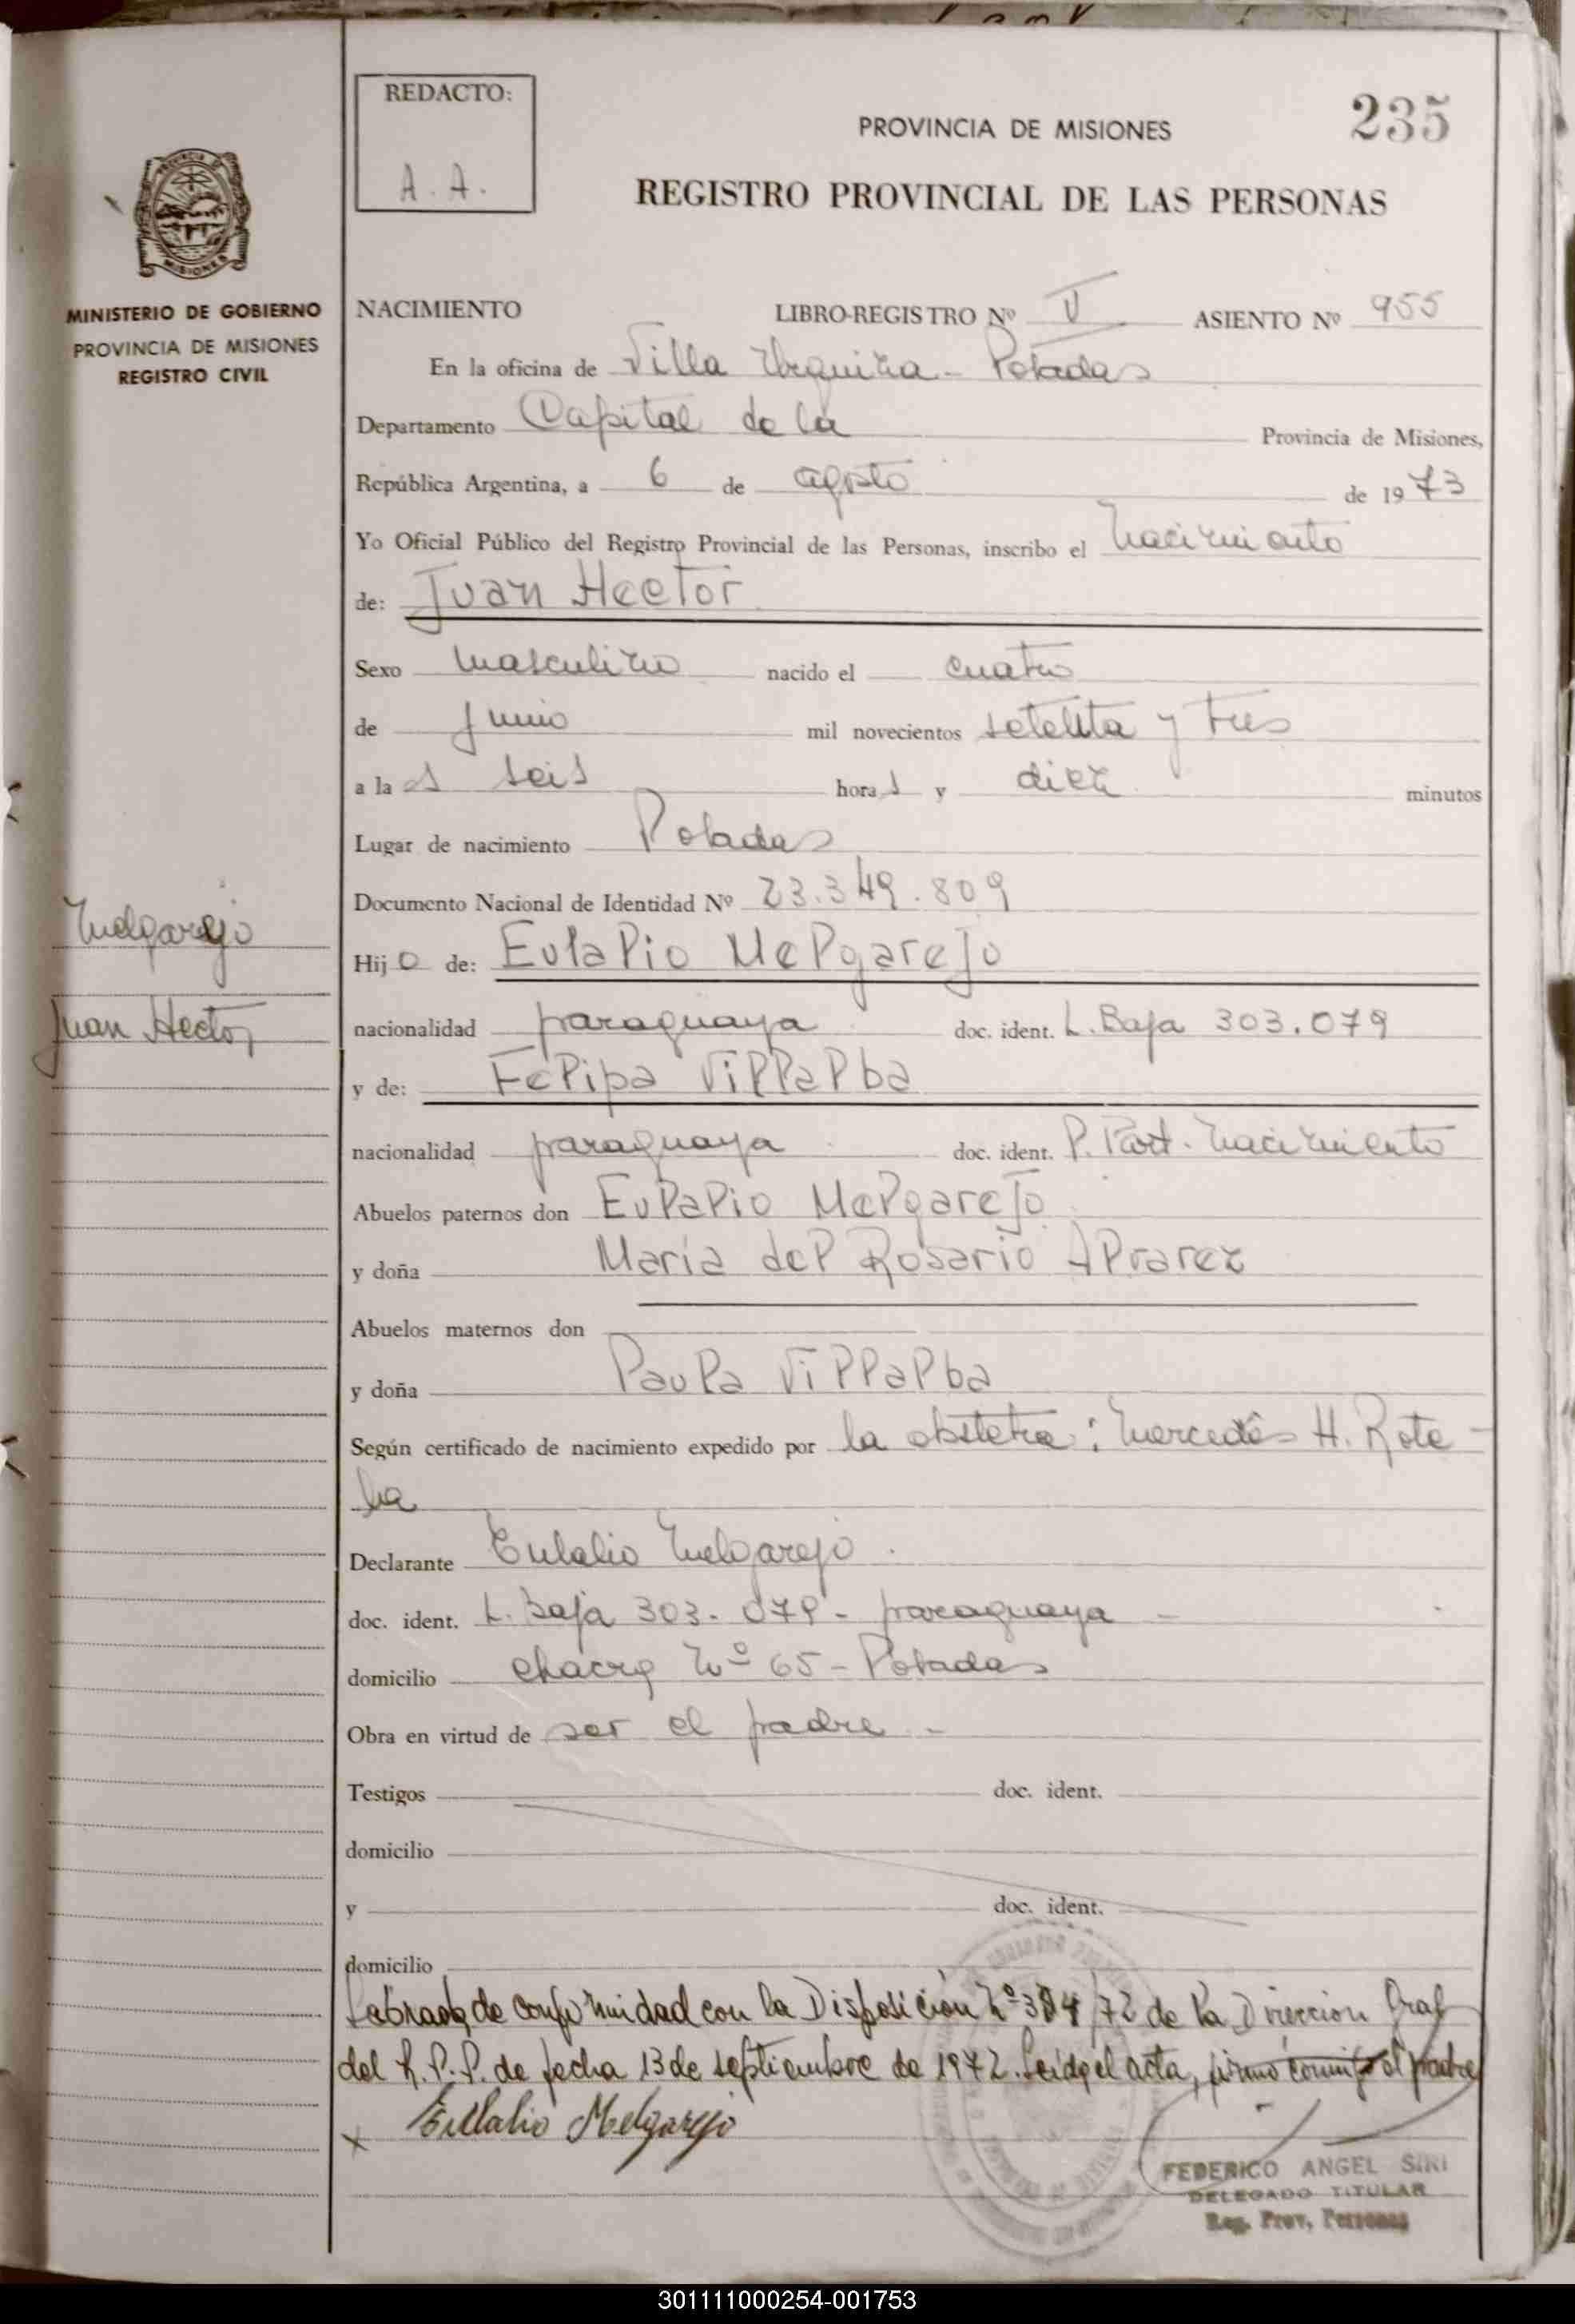 REDACTO:
A. A.
235
PROVINCIA DE MISIONES
REGISTRO PROVINCIAL DE LAS PERSONAS
MISIONES
MINISTERIO DE GOBIERNO
PROVINCIA DE MISIONES
REGISTRO CIVIL
NACIMIENTO LIBRO-REGISTRO Nº V ASIENTO Nº 955
En la oficina de Villa Urquiza - Posadas
Departamento Capital de la Provincia de Misiones,
República Argentina, a 6 de agosto de 1973
Yo Oficial Público del Registro Provincial de las Personas, inscribo el nacimiento
de: Juan Hector
Sexo masculino nacido el cuatro
de junio mil novecientos setenta y tres
a las seis horas y diez minutos
Lugar de nacimiento Posadas
Documento Nacional de Identidad Nº 23.349.809
Melgarejo
Juan Hector
Hijo de: Eulalio Melgarejo
nacionalidad paraguaya doc. ident. L. Baja 303.079
y de: Felipa Villalba
nacionalidad paraguaya doc. ident. P. Part. nacimiento
Abuelos paternos don Eulalio Melgarejo
y doña María del Rosario Alvarez
Abuelos maternos don
y doña Paula Villalba
Según certificado de nacimiento expedido por la obstetra: Mercedes H. Rote-
la
Declarante Eulalio Melgarejo.
doc. ident. L. Baja 303.079 - paraguaya -
domicilio chacra Nº 65 - Posadas
Obra en virtud de ser el padre -
Testigos doc. ident.
domicilio
y doc. ident.
domicilio
Labrada de conformidad con la Disposición Nº 384/72 de la Dirección Gral
del R.P.P. de fecha 13 de septiembre de 1972. Leida el acta, firma conmigo el padre
x Eulalio Melgarejo
FEDERICO ANGEL SIRI
DELEGADO TITULAR
Reg. Prov. Personas
301111000254-001753